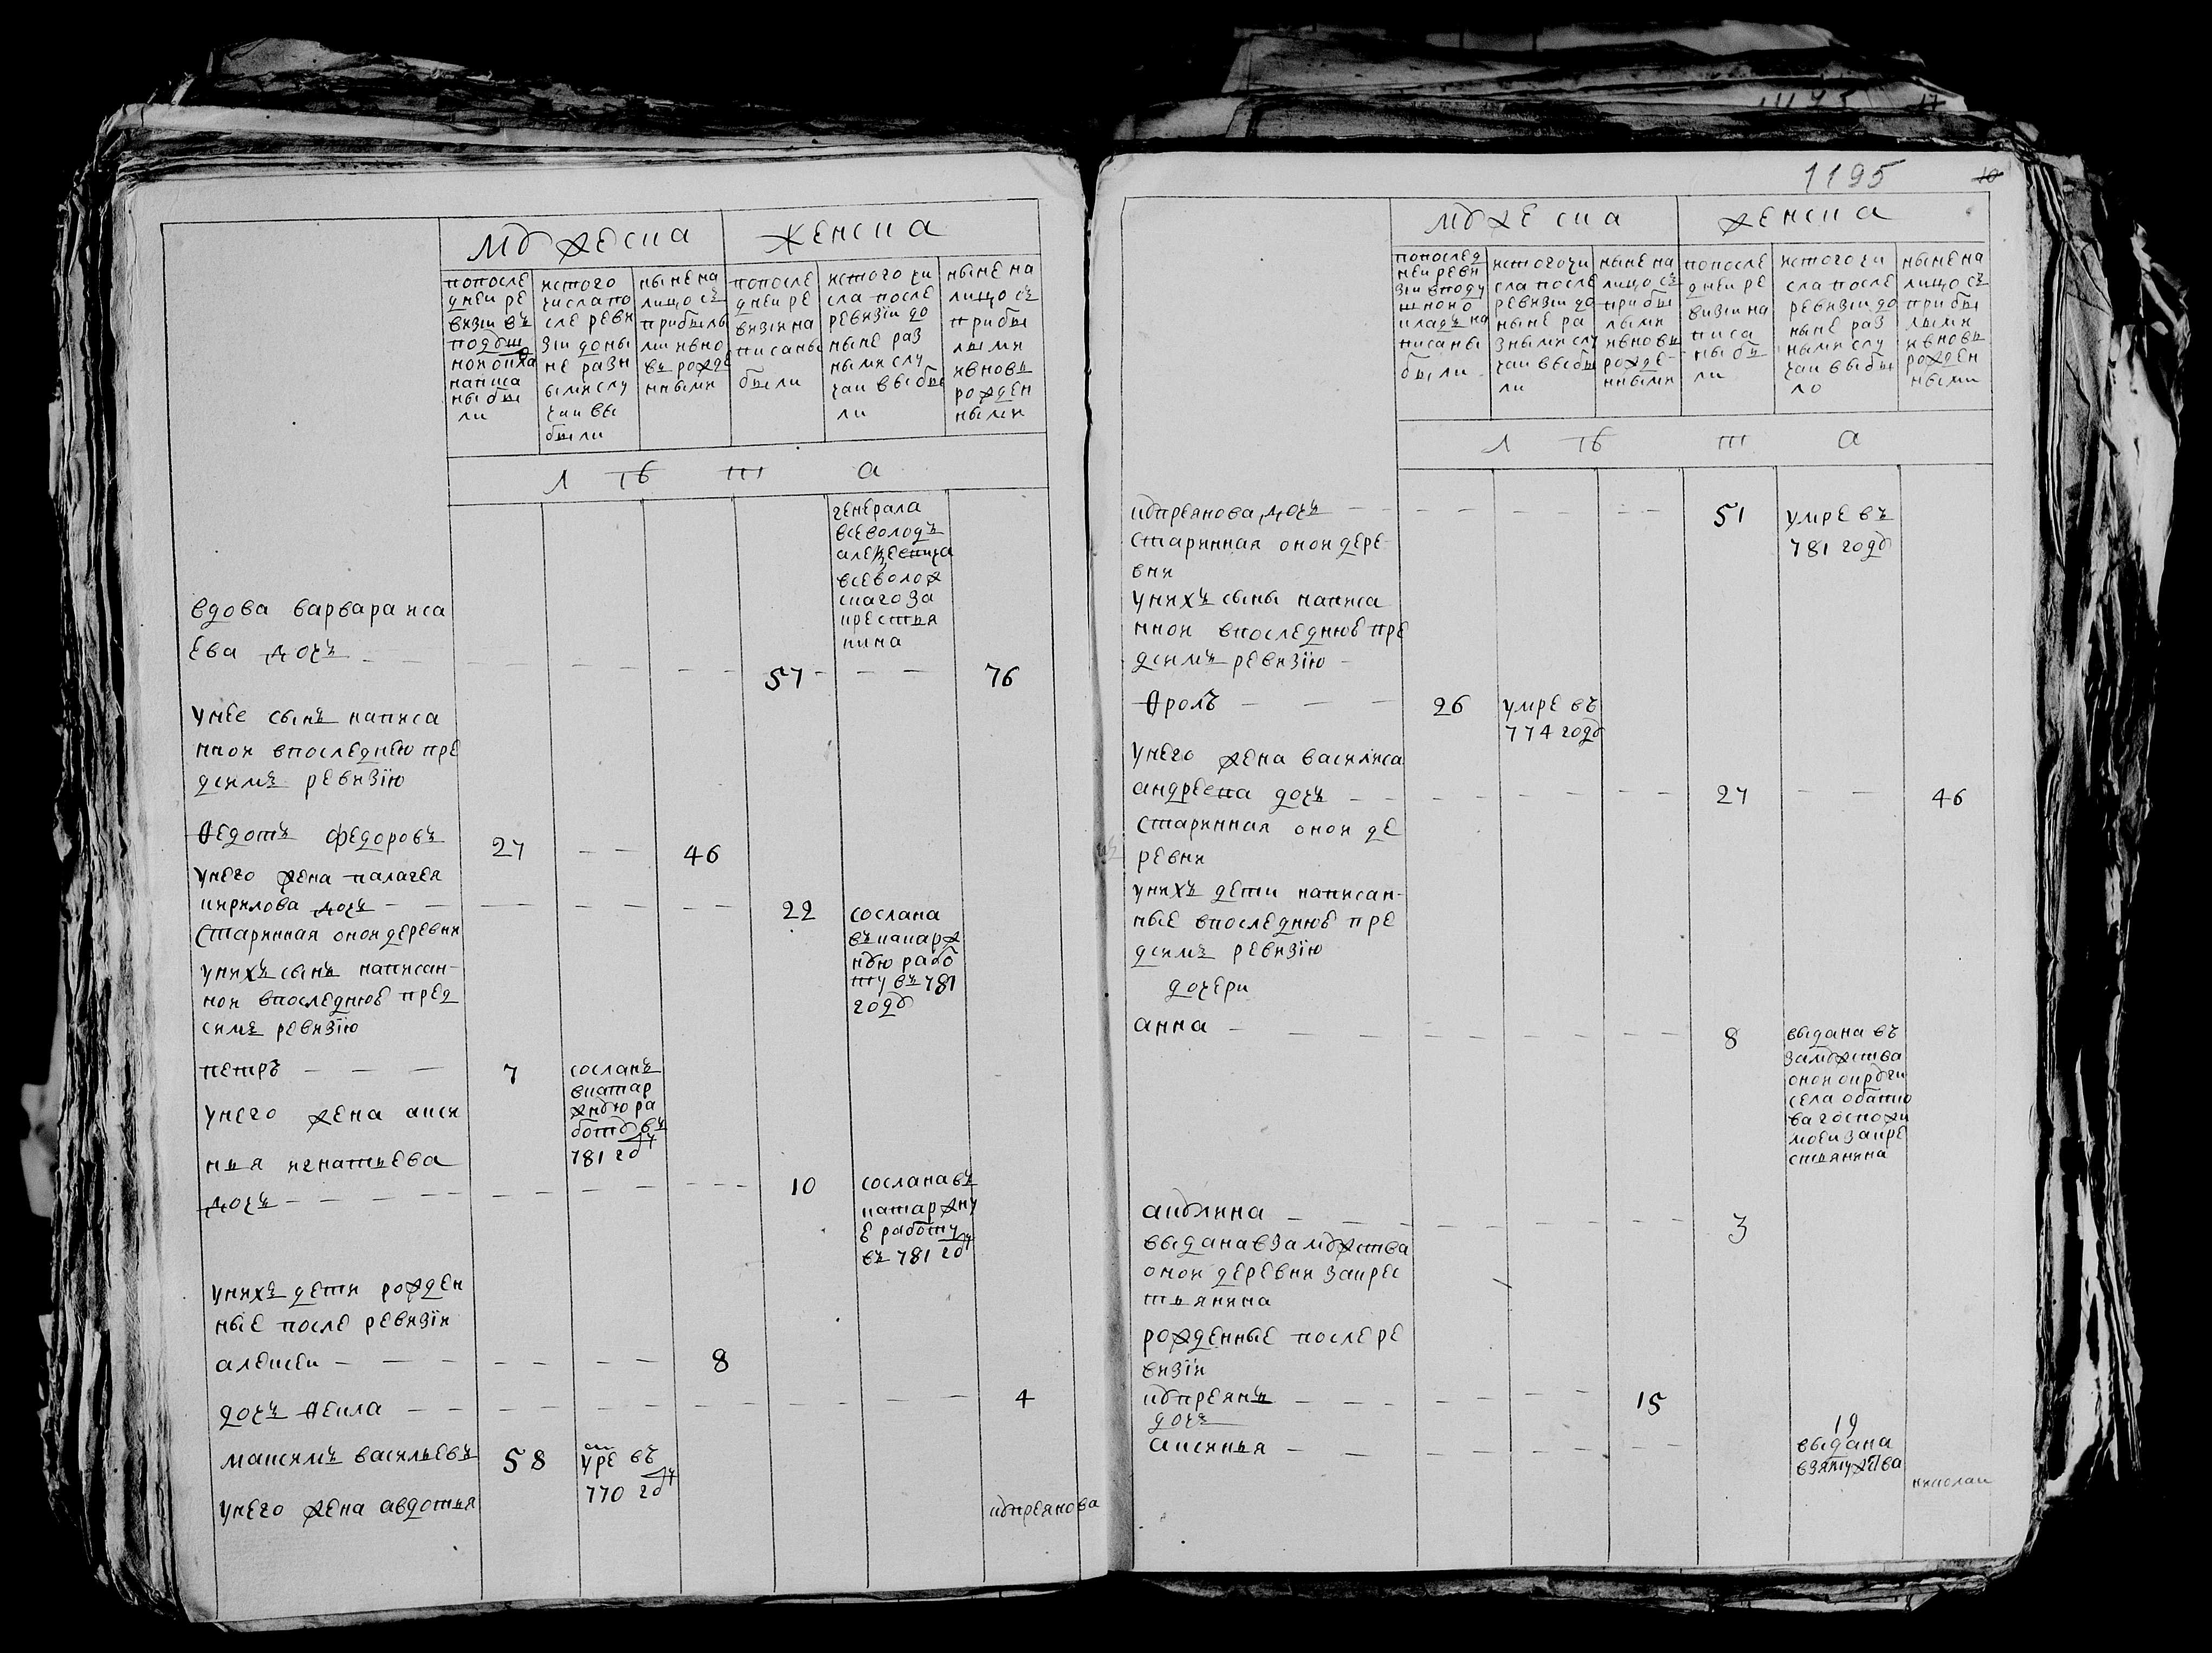 мужеска женска
попосле
дней ре
визiи въ
подуш
ной окла
написа
ны бы
ли
истого
числа по
сле реви
зiи доны
не разн
ыми слу
чаи вы
были
ныне на
лицо съ
прибылы
ми ивно
въ рожде
нными
попосле
дней ре
визiи на
писаны
были
истого чи
сла после
ревизiи до
ныне раз
ными слу
чаи выбы
ли
ныне на
лицо съ
прибы
лыми
ивновь
рожден
ными
л ѣ т а
генерала
всеволодъ
алеѯевича
всеволож
скаго за
крестья
нина
вдова варвара иса
ева дочь 57 76
унее сынъ написа
нной впоследнею пре
дсимъ ревизiю
Ѳедотъ федоровъ 27 46
унего жена палагея
кирилова дочь 22 сослана
старинная оной деревни
въкаторж
нбю рабо
ту въ 781
годб
унихъ сынъ написан-
ной впоследнюю пред
симъ ревизiю
петръ 7 сосланъ
вкатар
жнбю ра
ботб въ
781 гд
унего жена акси
нья игнатьева
дочь 10 сослана въ
катаржну
ю работу
въ 781 гд
унихъ дети рожден
ные после ревизiи
алексеи 8
дочь Ѳекла 4
максимъ васильевъ 58 умре въ
770 гд
унего жена авдотья
кбпреянова
1195
10
мбжеска женска
попослед
неи реви
зiи вподу
шнойо
кладъ на
писаны
были
истогочи
сла после
ревизiи до
ныне ра
зными слу
чаи выбы
ли
ныне на
лицо съ
прибы
лыми
ивновь
рожде-
нными
попосле
дней ре
визiи на
писа
ны бы
ли
истого чи
сла после
ревизiи до
ныне раз
ными слу
чаи выбы
ло
ныне на
лицо съ
прибы
лыми
ивновь
рожден
ными
л ѣ т а
кбпреянова дочь 51 умре въ
781 годб
старинная оной дере-
вни
унихъ сыны написа
нной впоследнюю пре
дсимъ ревизiю
Ѳролъ 26 умре въ
774 годб
унего жена василиса
андреева дочь 27 46
старинная оной де
ревни
унихъ дети написан-
ные впоследнюю пре
дсимъ ревизiю
дочери
анна 8 выдана въ
замбжства
оной окрбги
села
ва госпожи
моеи за кре
стьянина
акблина 3
выдана взамбжства
оной деревни закрес
тьянина
рожденные после ре
визiи
кбпреянъ 15
дочь
аксинья 19
выдана
николаи